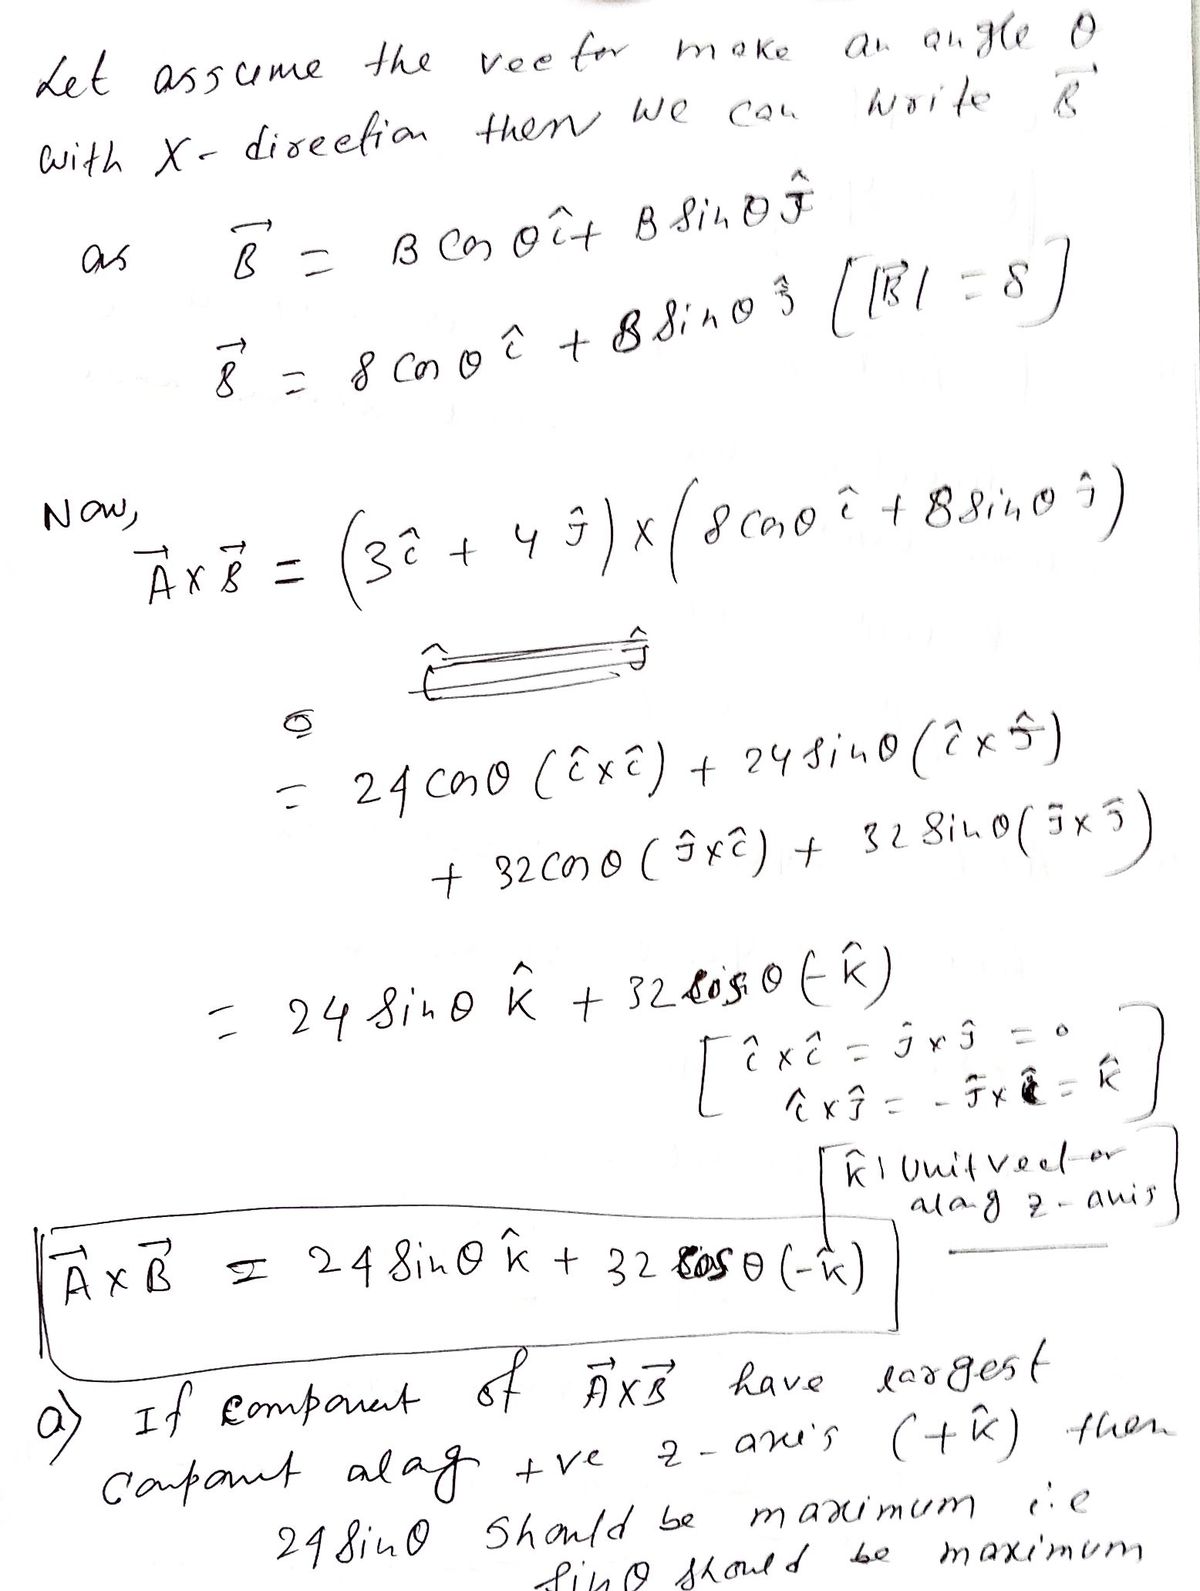 Let assume the vector make an angle θ
with X-direction then we can write B⃗
as B⃗ = B cos θ î + B sin θ ĵ
B⃗ = 8 cos θ î + 8 sin θ ĵ [|B⃗| = 8]
Now,
A⃗ × B⃗ = (3î + 4ĵ) × (8 cos θ î + 8 sin θ ĵ)
= 24 cos θ (î × î) + 24 sin θ (î × ĵ)
+ 32 cos θ (ĵ × î) + 32 sin θ (ĵ × ĵ)
= 24 sin θ k̂ + 32 cos θ (-k̂)
[î × î = ĵ × ĵ = 0
î × ĵ = -ĵ × î = k̂]
[k̂ | Unit vector
alag z-axis]
A⃗ × B⃗ = 24 sin θ k̂ + 32 cos θ (-k̂)
a) If component of A⃗ × B⃗ have largest
Compont alag +ve z-axis (+k̂) then
24 sin θ should be maximum i.e
sin θ should be maximum